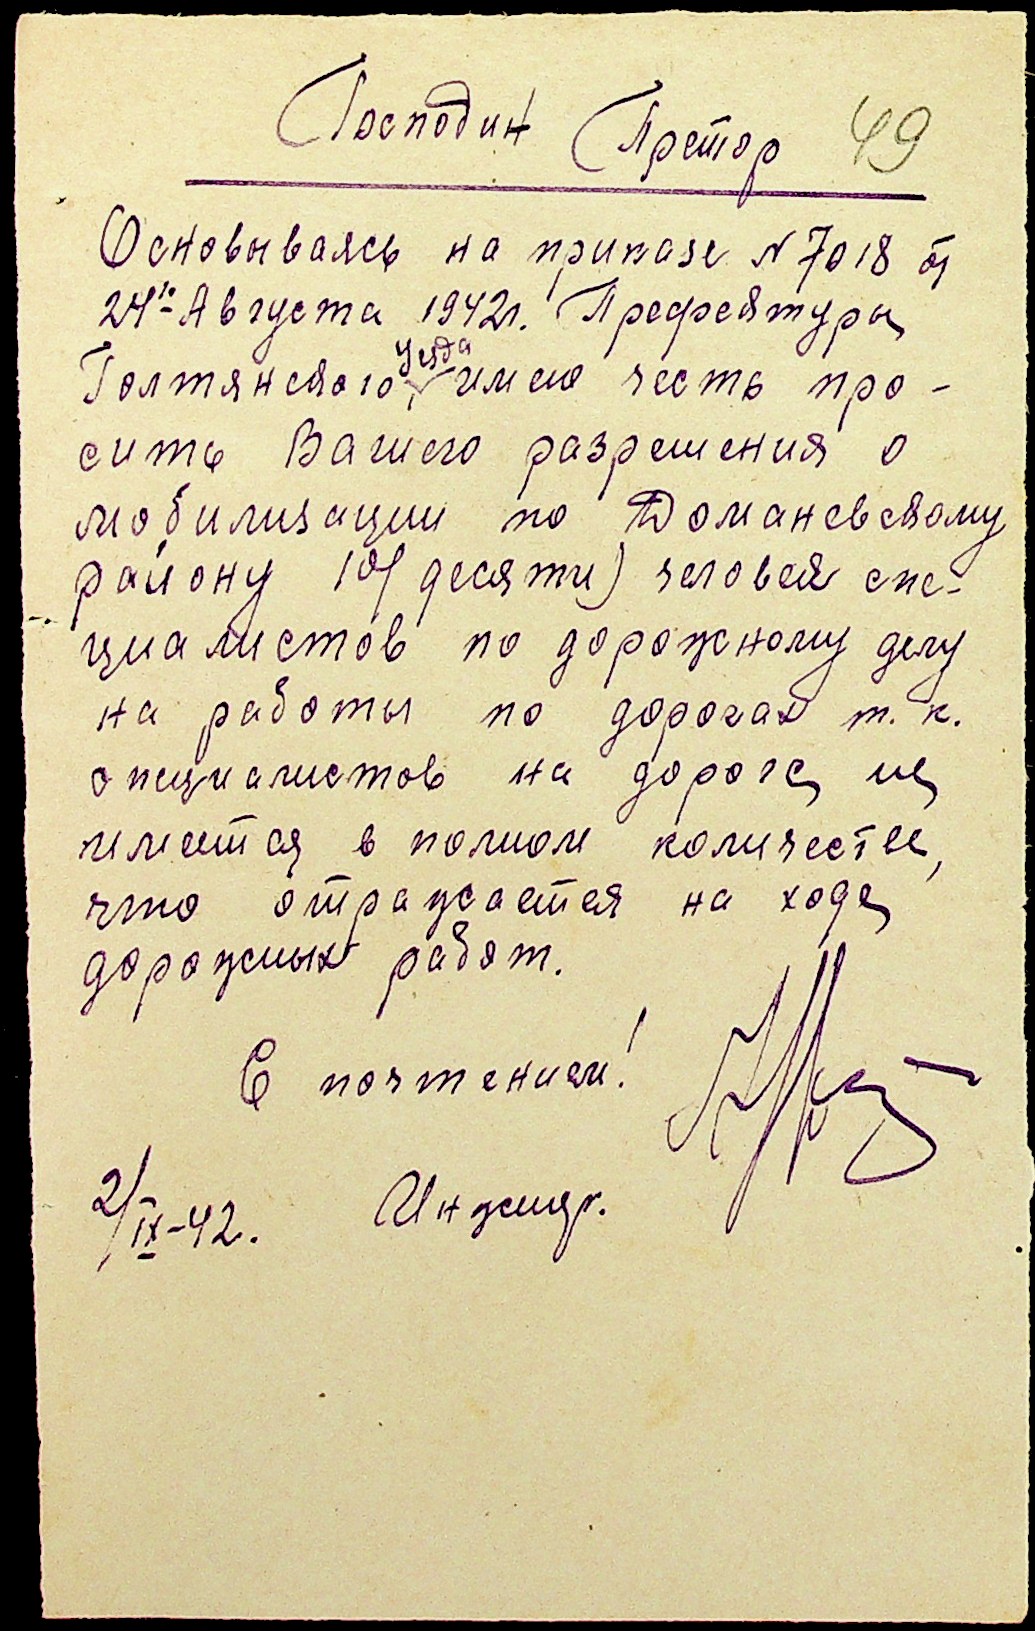 Господин Претор 49
Основываясь на приказе N 7018 от
24го Августа 1942г. Префектуры
Голтянского уезда имею честь про-
сить Вашего разрешения о
мобилизации по Доманевскому
району 10 (десяти) человек спе-
циалистов по дорожному делу
на работы по дорогах т. к.
специалистов на дороге не
имеется в полном количестве,
что отражается на ходе
дорожных работ.
С почтением!
2/IX-42. Инженер.